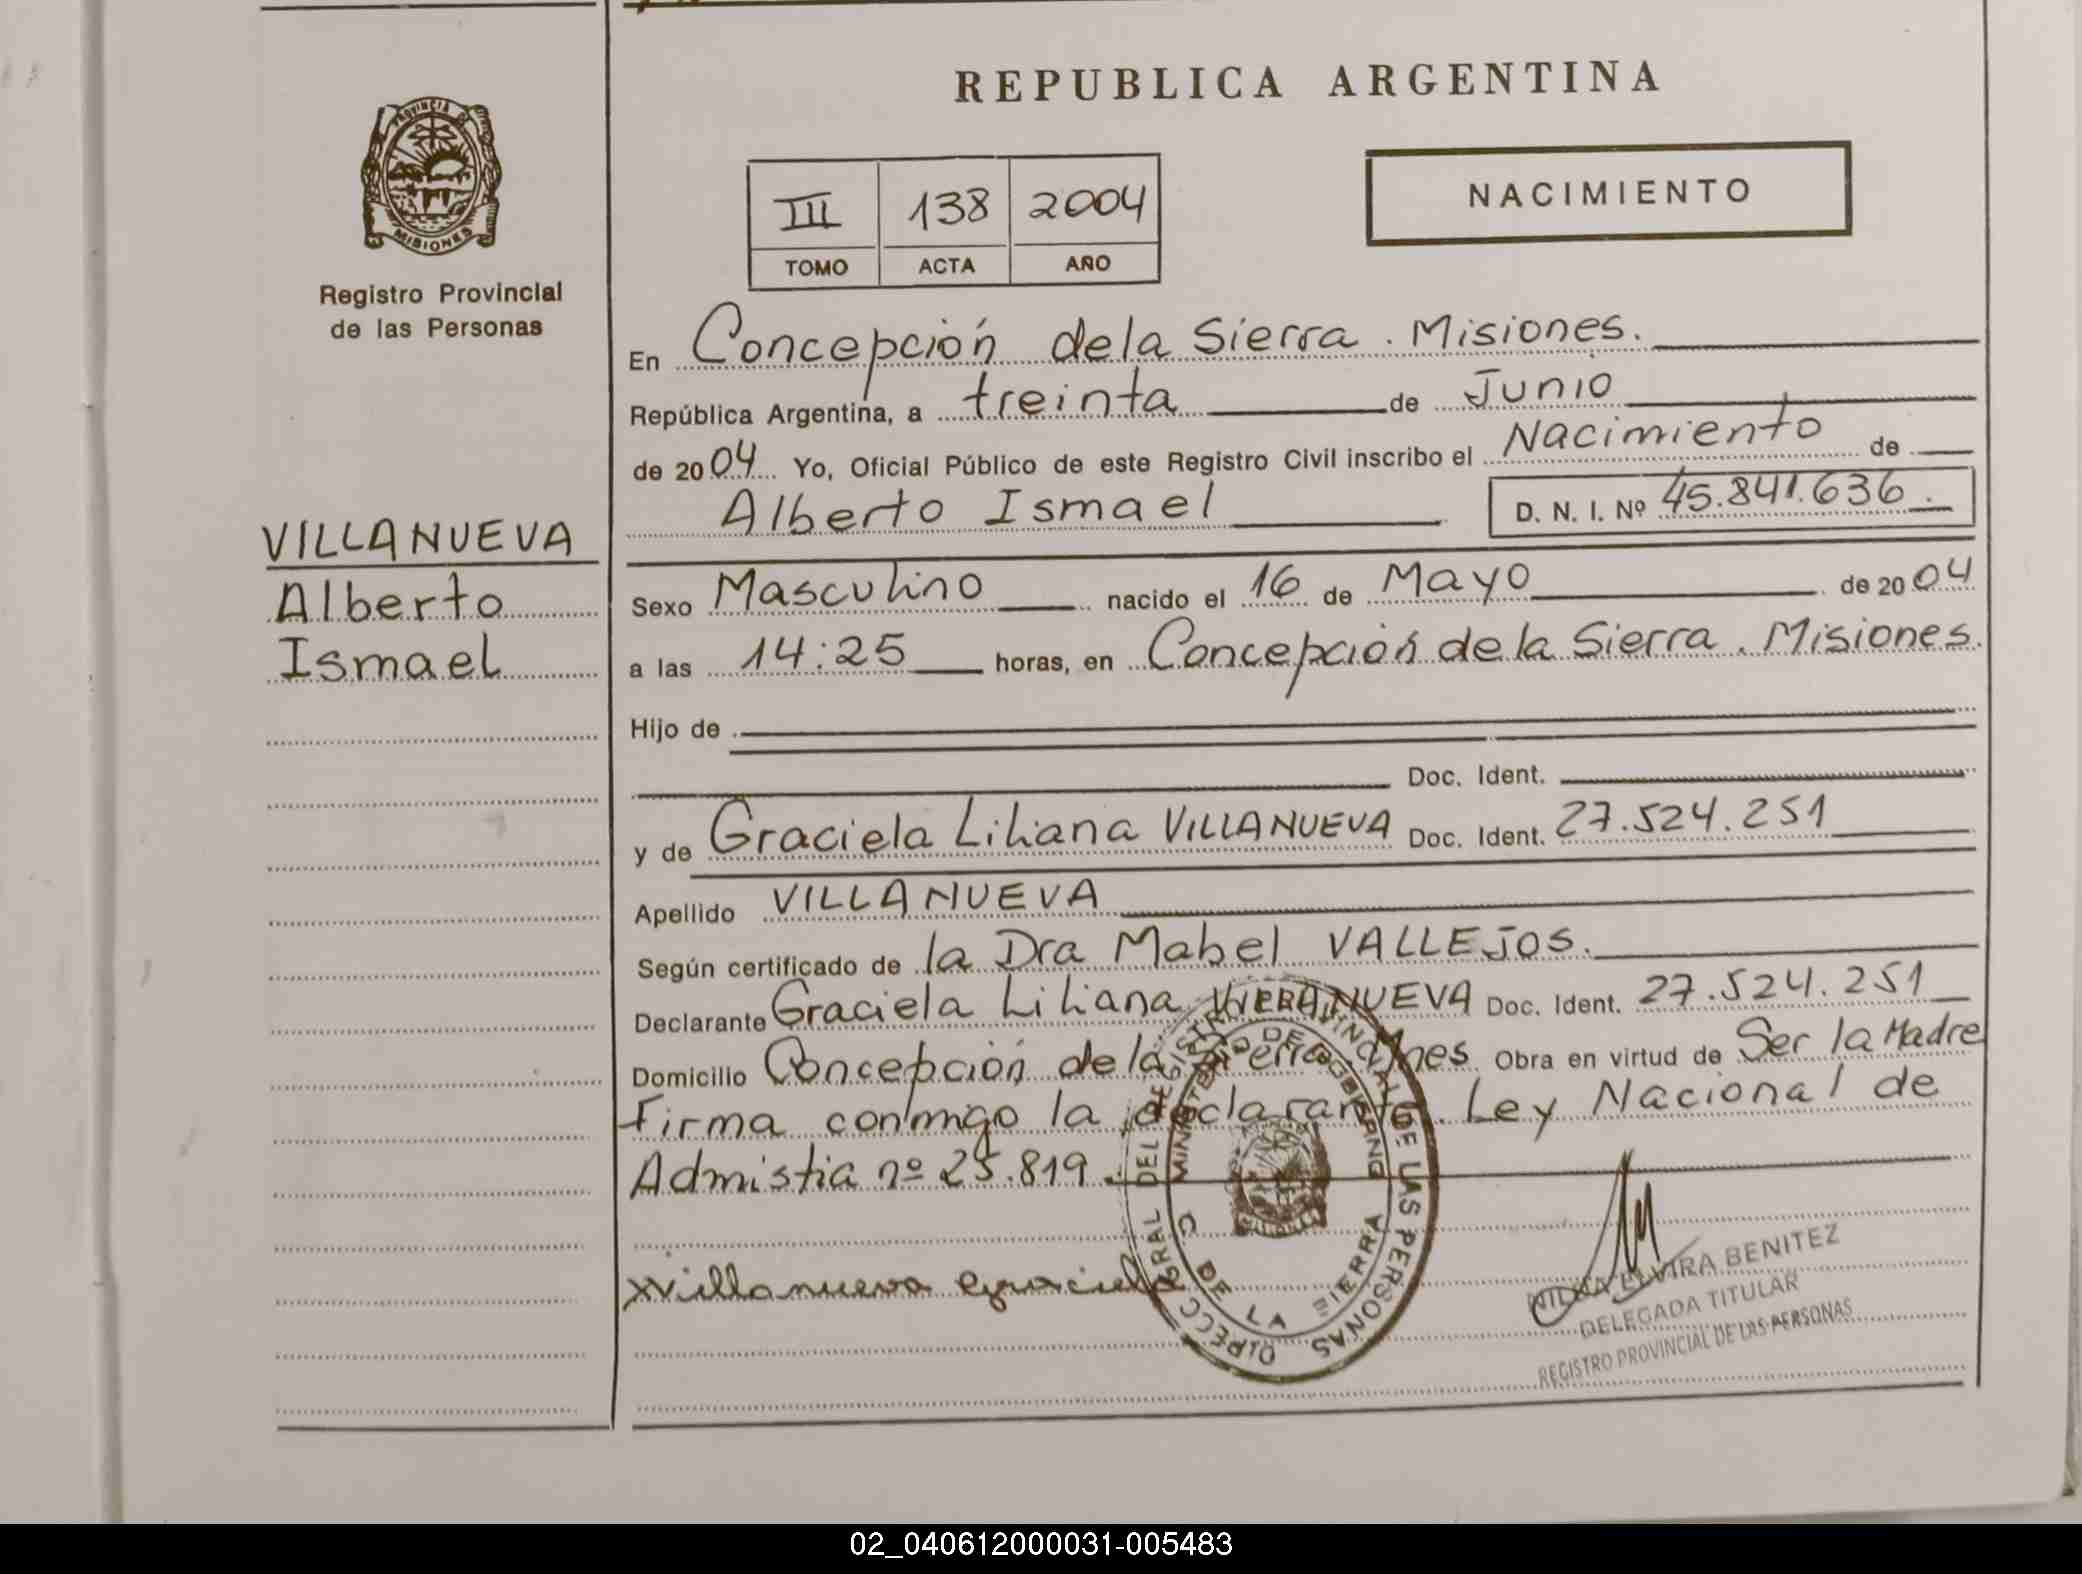 REPUBLICA ARGENTINA
PROVINCIA DE
MISIONES
Registro Provincial
de las Personas
NACIMIENTO
III 138 2004
TOMO ACTA AÑO
En Concepción de la Sierra. Misiones.
República Argentina, a treinta de Junio
de 2004 Yo, Oficial Público de este Registro Civil inscribo el Nacimiento de
Alberto Ismael D. N. I. Nº 45.841.636.
VILLANUEVA
Alberto
Ismael
Sexo Masculino nacido el 16 de Mayo de 2004
a las 14:25 horas, en Concepción de la Sierra. Misiones.
Hijo de
Doc. Ident.
y de Graciela Liliana VILLANUEVA Doc. Ident. 27.524.251
Apellido VILLANUEVA
Según certificado de la Dra Mabel VALLEJOS.
Declarante Graciela Liliana VILLANUEVA Doc. Ident. 27.524.251
Domicilio Concepción de la Sierra Mnes Obra en virtud de Ser la Madre
Firma conmigo la declarante. Ley Nacional de
Admistia nº 25.819.
xVillanueva Graciela
DEL REGISTRO PROVINCIAL DE LAS PERSONAS
MINISTERIO DE GOBIERNO
C. DE LA SIERRA
ELVIRA BENITEZ
DELEGADA TITULAR
REGISTRO PROVINCIAL DE LAS PERSONAS
02_040612000031-005483